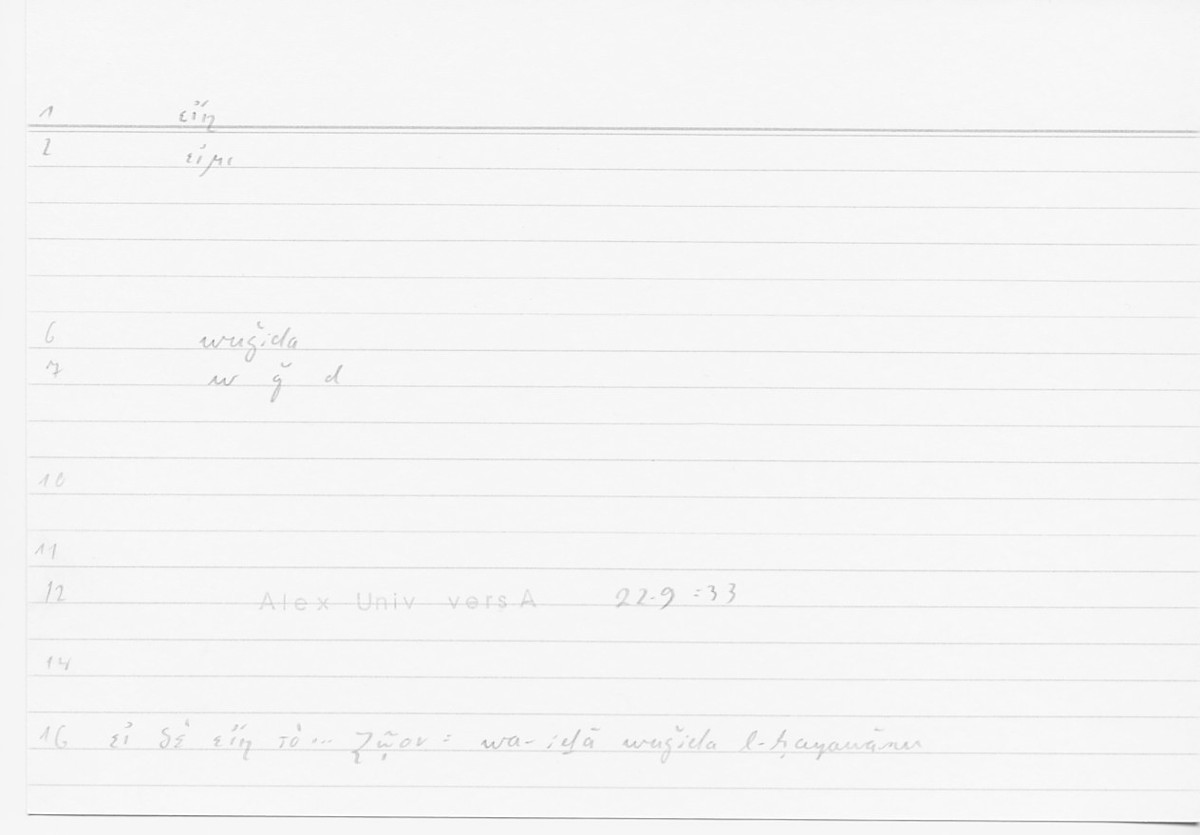 1 εἴη
2 εἰμι
6 wuǧida
7 w ǧ d
10
11
12 Alex Univ vers A 22.9 = 33
14
16 εἰ δὲ εἴη τὸ... ζῷον = wa-iḏā wuǧida l-ḥayawānu